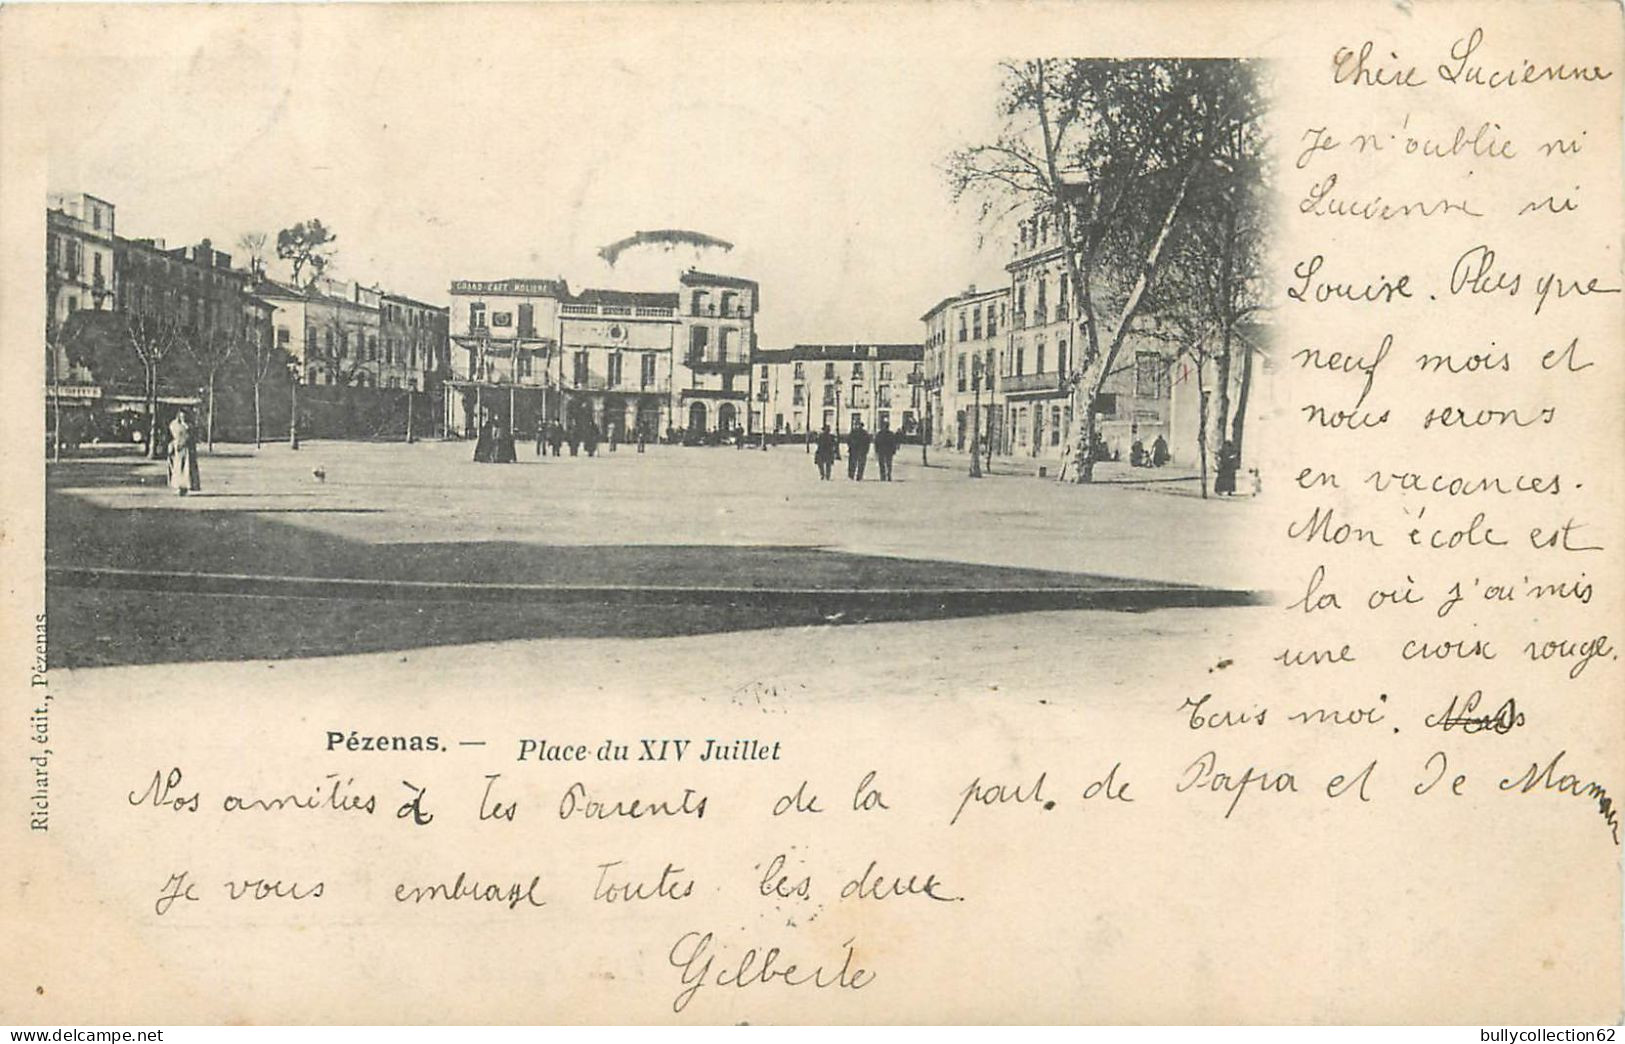 Chère Lucienne
Je n'oublie ni
Lucienne ni
Louise. Plus que
neuf mois et
nous serons
en vacances.
Mon école est
la où j'ai mis
une croix rouge.
Ecris moi.
GRAND CAFE MOLIERE
Richard, édit., Pézenas
Pézenas. — Place du XIV Juillet
Nos amitiés à tes Parents de la part. de Papa et de Maman
Je vous embrasse toutes les deux.
Gilberte
Delcampe.net
bullycollection62